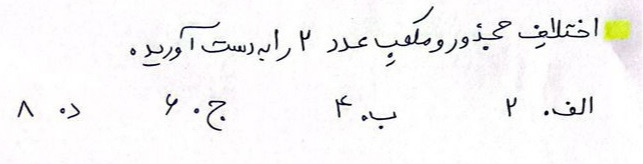 اختلافِ مجذور و مکعبِ عدد ۲ را به دست آورید.
الف. ۲ ب. ۴ ج. ۶ د. ۸